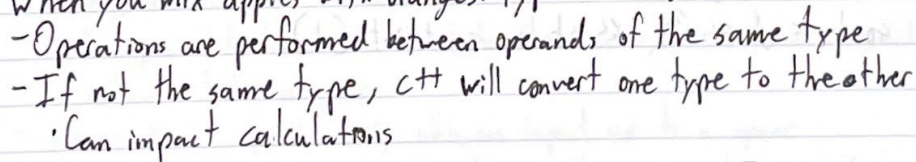 When you mix apples with oranges:
-Operations are performed between operands of the same type
-If not the same type, C++ will convert one type to the other
·Can impact calculations